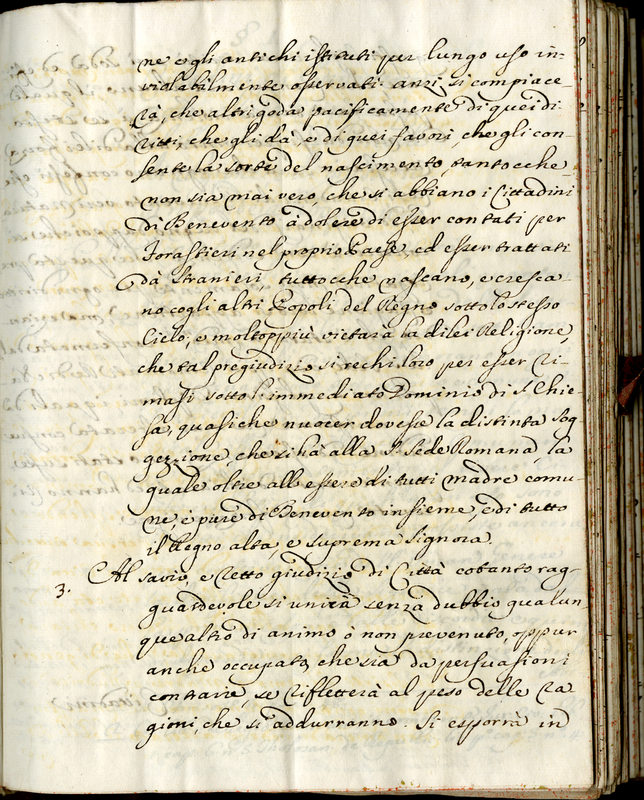 ne e gli antichi istituti per lungo uso in-
violabilmente osservati: anzi si compiace-
rà, che altri goda pacificamente di quei di
ritti, che gli dà, e di quei favori, che gli con-
sente la sorte del nascimento, tanto cche
non sia mai vero, che si abbiano i Cittadini
di Benevento à dolere di esser contati per
Forastieri nel proprio Paese, ed esser trattati
dà stranieri, tuttocche nascano, e cresca-
no cogli altri Popoli del Regno sotto lo stesso
Cielo, e moltoppiù vietarà la di lei Religione,
che tal pregiudizio si rechi loro per esser ri-
masi sotto l'immediato Dominio di S. Chie-
sa, quasiche nuocer dovesse la distinta sog
gezzione, che si hà alla S. Sede Romana, la
quale oltre all'essere di tutti Madre comu-
ne, è pure di Benevento insieme, e di tutto
il Regno alta, e suprema Signora.
3. Al savio, e retto giudizio di Città cotanto rag-
guardevole si unirà senza dubbio qualun
que altro di animo ò non prevenuto, oppur
anche occupato, che sia da persuasioni
contrarie, se rifletterà al peso delle ra
gioni, che si addurranno. Si esporrà in